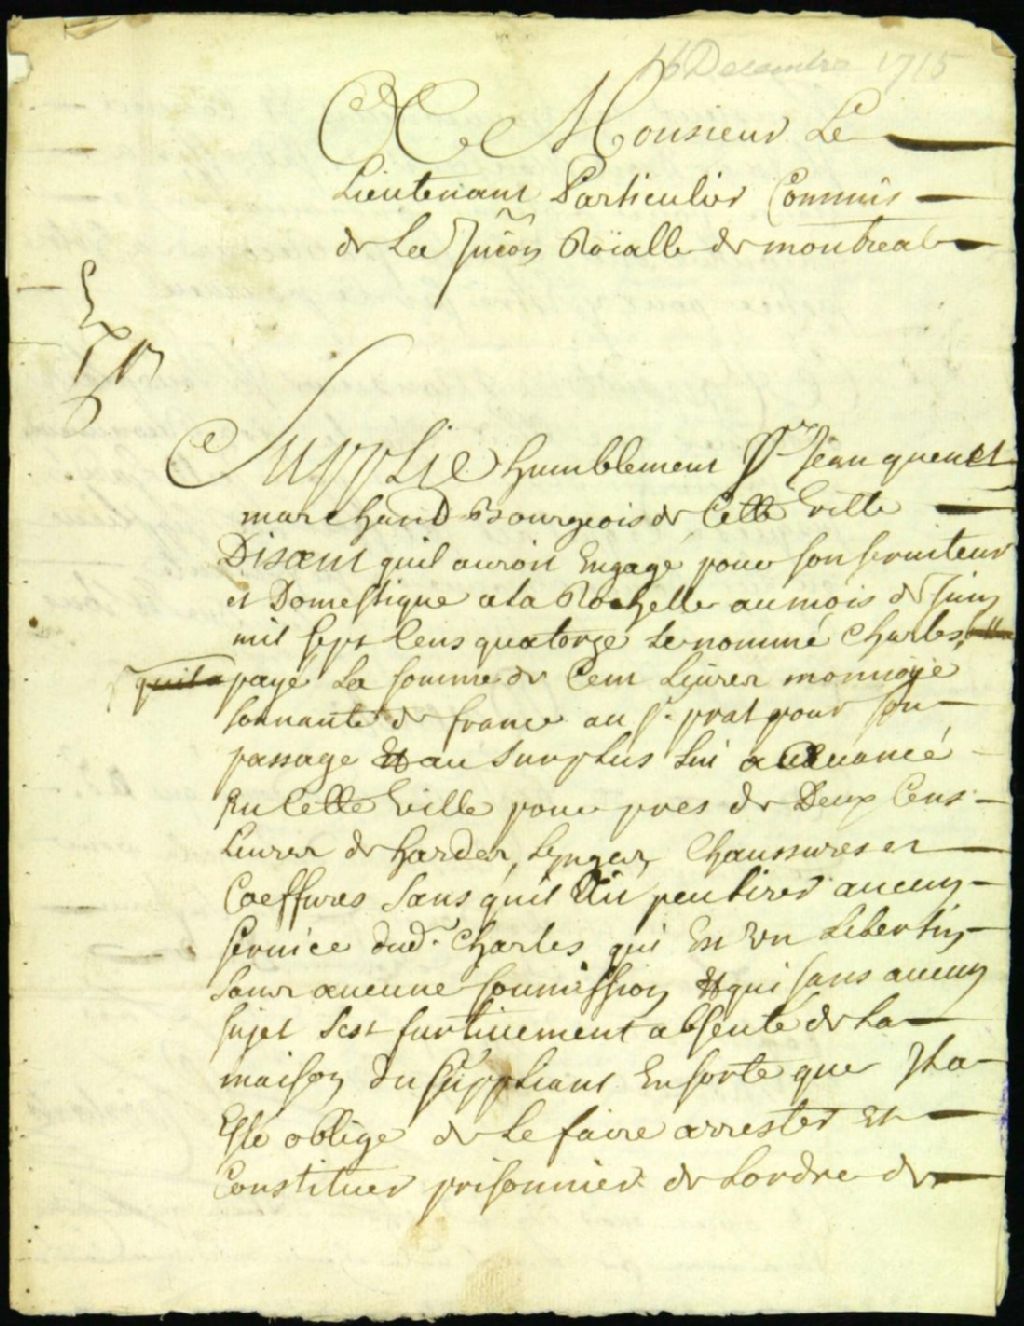 16 Decembre 1715
A Monsieur Le
Lieutenant Particulier Commis
de La Jur͠on Roïalle de montreal
Supplie humblement Sr. Jean quenet
marchand Bourgeois de Cette Ville
Disant quil auroit Engagé pour son seruiteur
et Domestique a La Rochelle au mois de Juin
mil sept Cens quatorze Le nommé Charles
quil a payé La somme de Cent Liures monnoye
sonnante de france au Sr. prat pour son
passage Et au surplus Lui a auancé
En Cette Ville pour pres de Deux Cens
Liures de hardes, Linges, Chaussures et
Coeffures sans quil Ait peu tirer aucun
seruice dud. Charles qui Est un Libertin
sans aucune soumission Et qui sans aucun
sujet s'est furtiuement absenté de La
maison du suppliant En sorte que Il a
Esté obligé de Le faire arrester Et
Constituer prisonnier de Lordre de